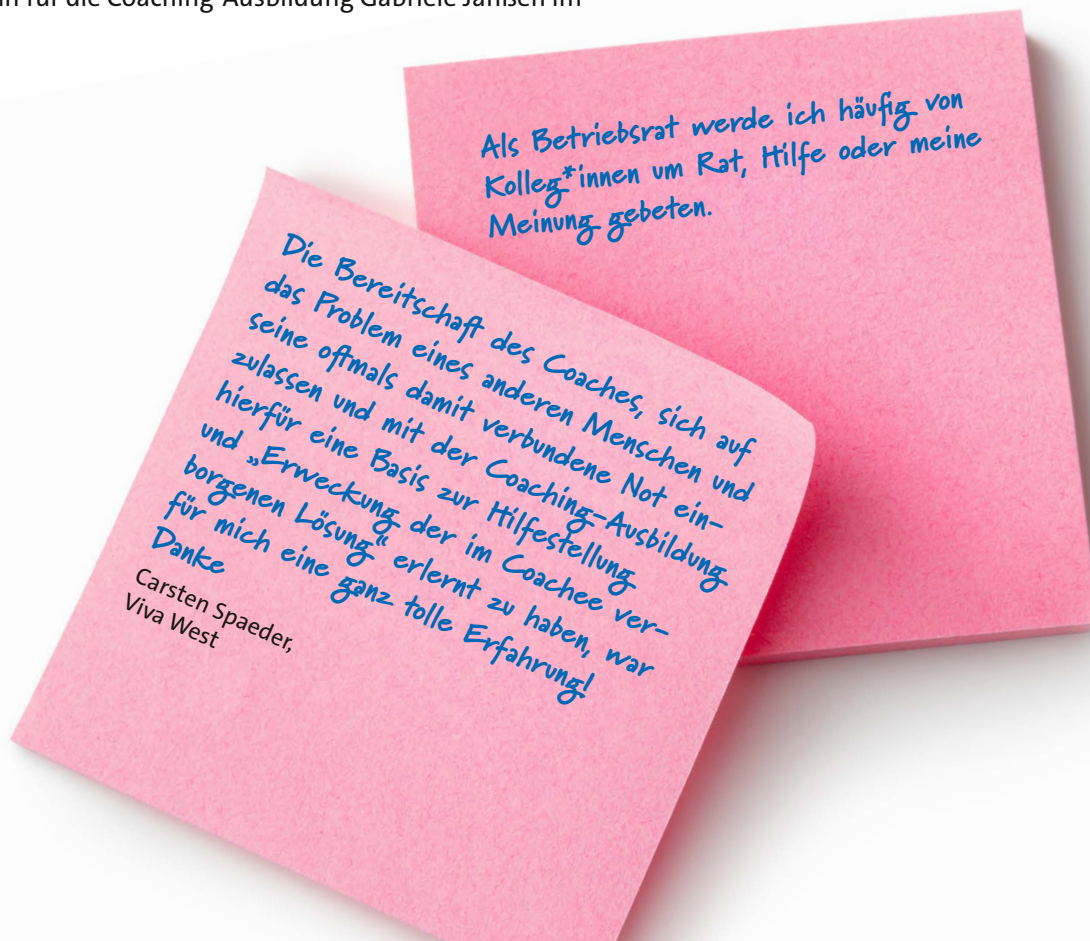 für die Coaching-Ausbildung Gabriele Janßen im
Als Betriebsrat werde ich häufig von
Kolleg*innen um Rat, Hilfe oder meine
Meinung gebeten.
Die Bereitschaft des Coaches, sich auf
das Problem eines anderen Menschen und
seine oftmals damit verbundene Not ein-
zulassen und mit der Coaching-Ausbildung
hierfür eine Basis zur Hilfestellung
und „Erweckung der im Coachee ver-
borgenen Lösung“ erlernt zu haben, war
für mich eine ganz tolle Erfahrung!
Danke
Carsten Spaeder,
Viva West